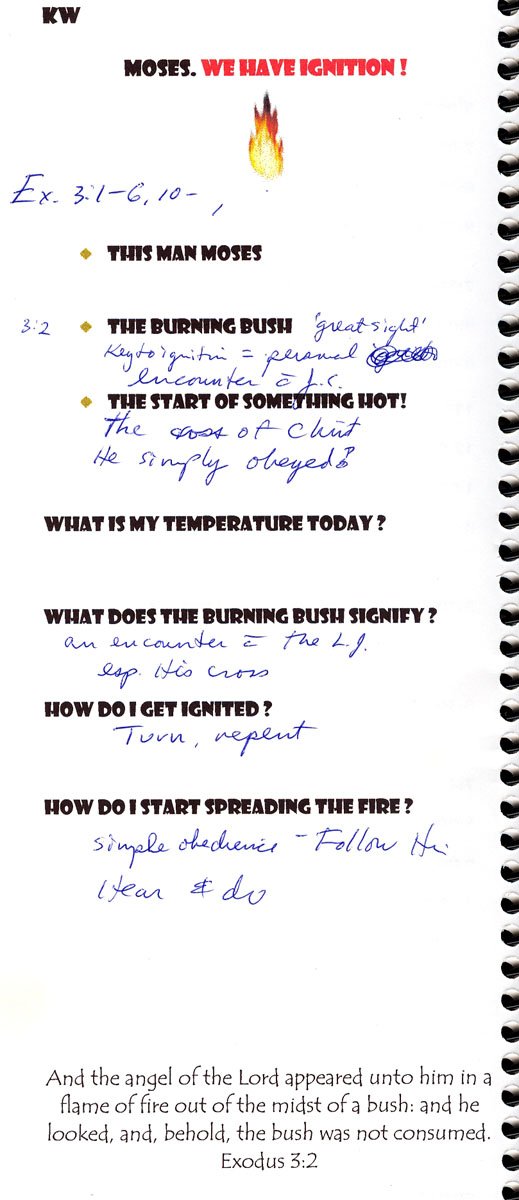 KW
MOSES. WE HAVE IGNITION !
Ex. 3:1-6, 10- ,
THIS MAN MOSES
3:2 THE BURNING BUSH 'great sight'
Key to ignition = personal
encounter c̄ J.C.
THE START OF SOMETHING HOT!
The cross of Christ
He simply obeyed!
WHAT IS MY TEMPERATURE TODAY ?
WHAT DOES THE BURNING BUSH SIGNIFY ?
an encounter c̄ the L.J.
esp. His cross
HOW DO I GET IGNITED ?
Turn, repent
HOW DO I START SPREADING THE FIRE ?
simple obedience - Follow
Hear & do
And the angel of the Lord appeared unto him in a
flame of fire out of the midst of a bush: and he
looked, and, behold, the bush was not consumed.
Exodus 3:2